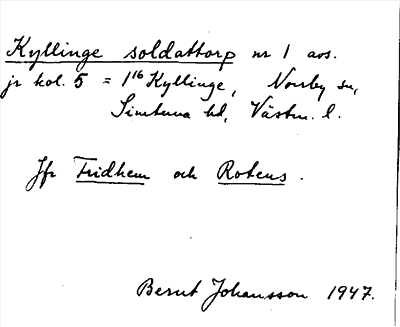 Kyllinge soldattorp nr 1 avs.
jr kol. 5 = 1¹⁶ Kyllinge, Norrby sn,
Simtuna hd, Västm. l.
Jfr Fridhem och Rotens.
Bernt Johansson 1947.